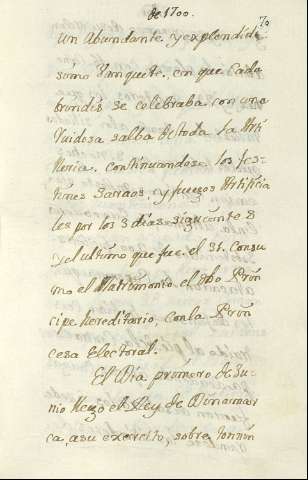 de 1700.
70
Un Abundante. y explendidi
simo Vanquete. con que cada
brindis se celebraba con una
Ruidosa salba de toda la Arti
lleria. continuandose. los fes-
tines saraos, y fuegos Artificia
les por los 3 dias siguientes
y el ultimo que fue. el 31. Consu
mo el Matrimonio el dho Prin
cipe hereditario, con la Prin
cesa Electoral.
El Dia primero de Ju-
nio llego el Rey de Dinamar
ca, a su exercito, sobre